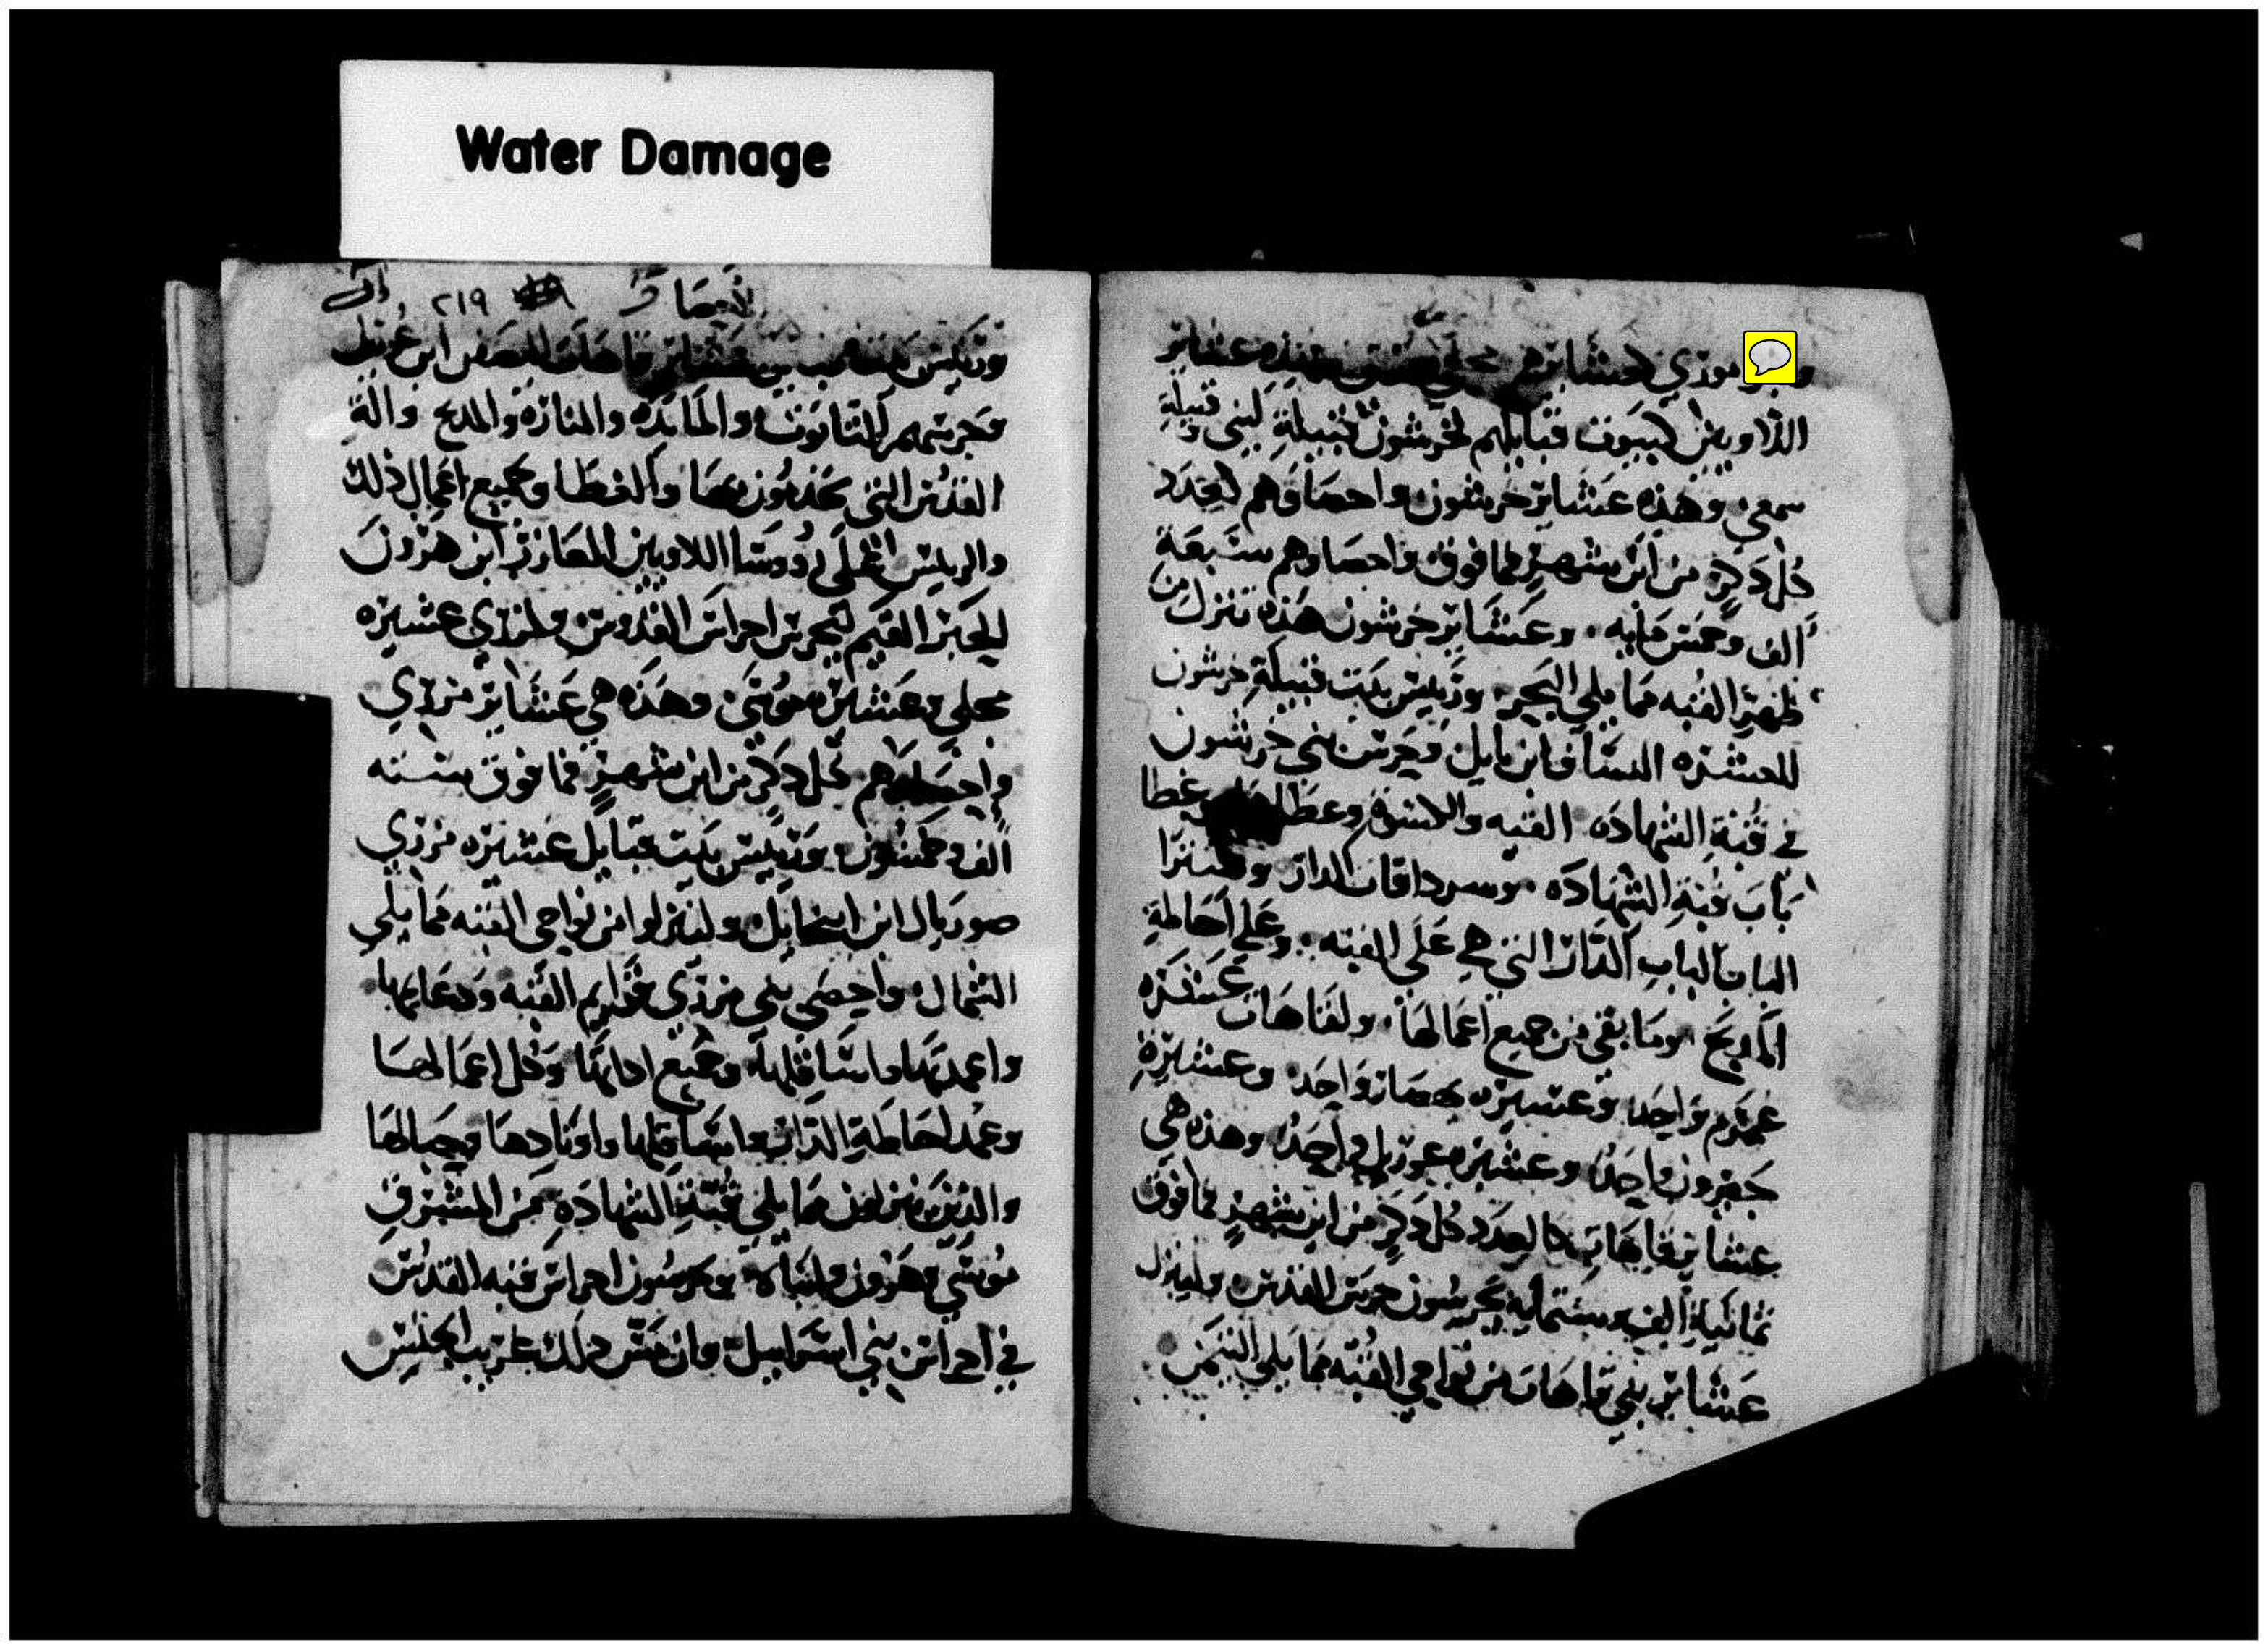 Water Damage
موزي لعشاىر هم
اللاويين لبيوت قبايلهم لخرشون قبيلة لبني وقبيلة
سمعي وهذه عشاير خرشون واحصاوهم لعدد
كل دكر من ابن شهر فما فوق واحصاوهم سبعة
الف وخمس مايه وعشاير خرشون هذه تنزل من
ظهر القبه مما يلي البحر وريس بيت قبيلة خرشون
للعشيره الساف ابن لايل وحرس بني خرشون
في قبة الشهاده القبه والاستره وغطا
باب قبة الشهاده وسرداقات الدار وستر
الباب لباب الدار التي هي على القبه وعلى احاطة
المدبح وما بقي من جميع اعمالها ولقاهات عشيره
عمرم واحد وعشيره يصار واحد وعشيرة
حبرون واحد وعشيره عوزيل واحد وهذه هي
عشاير قاهات كالعدد كل دكر من ابن شهر فما فوق
ثمانية الف وستمايه يحرسون حرس القدس ولينزل
عشاير بني قاهات من نواحي القبه مما يلي اليمن
الاحصا ٢١٩
وريس بيت عشاير قاهات اليصفن ابن عزييل
وحرستهم التابوت والمايده والمناره والمدبح والة
القدس التي يخدمون بها والغطا وجميع اعمال ذلك
والريس على رووسا اللاويين العازر ابن هرون
الحبر القيم لتحرس احراس القدوس ولمرري عشيره
محلي وعشيره موسى وهذه هي عشاير مرري
واحصاهم كل دكر من ابن شهر فما فوق سته
الف وخمسون وريس بيت قبايل عشيره مرري
صوريال ابن ابيخايل ولينزلوا من نواحي القبه مما يلي
الشمال واحصي بني مرري عوارم القبه ودعايمها
واعمدتها واساقلها وجميع اداتها وكل اعمالها
وعمد احاطة الدار واساقلها واوتادها وحبالها
والذين ينزلون مما يلي قبة الشهاده من المشرق
موسي وهرون وابناه يحرسون احراس قبه القدس
في احراس بني اسراييل وان مس دلك غريب الجنس